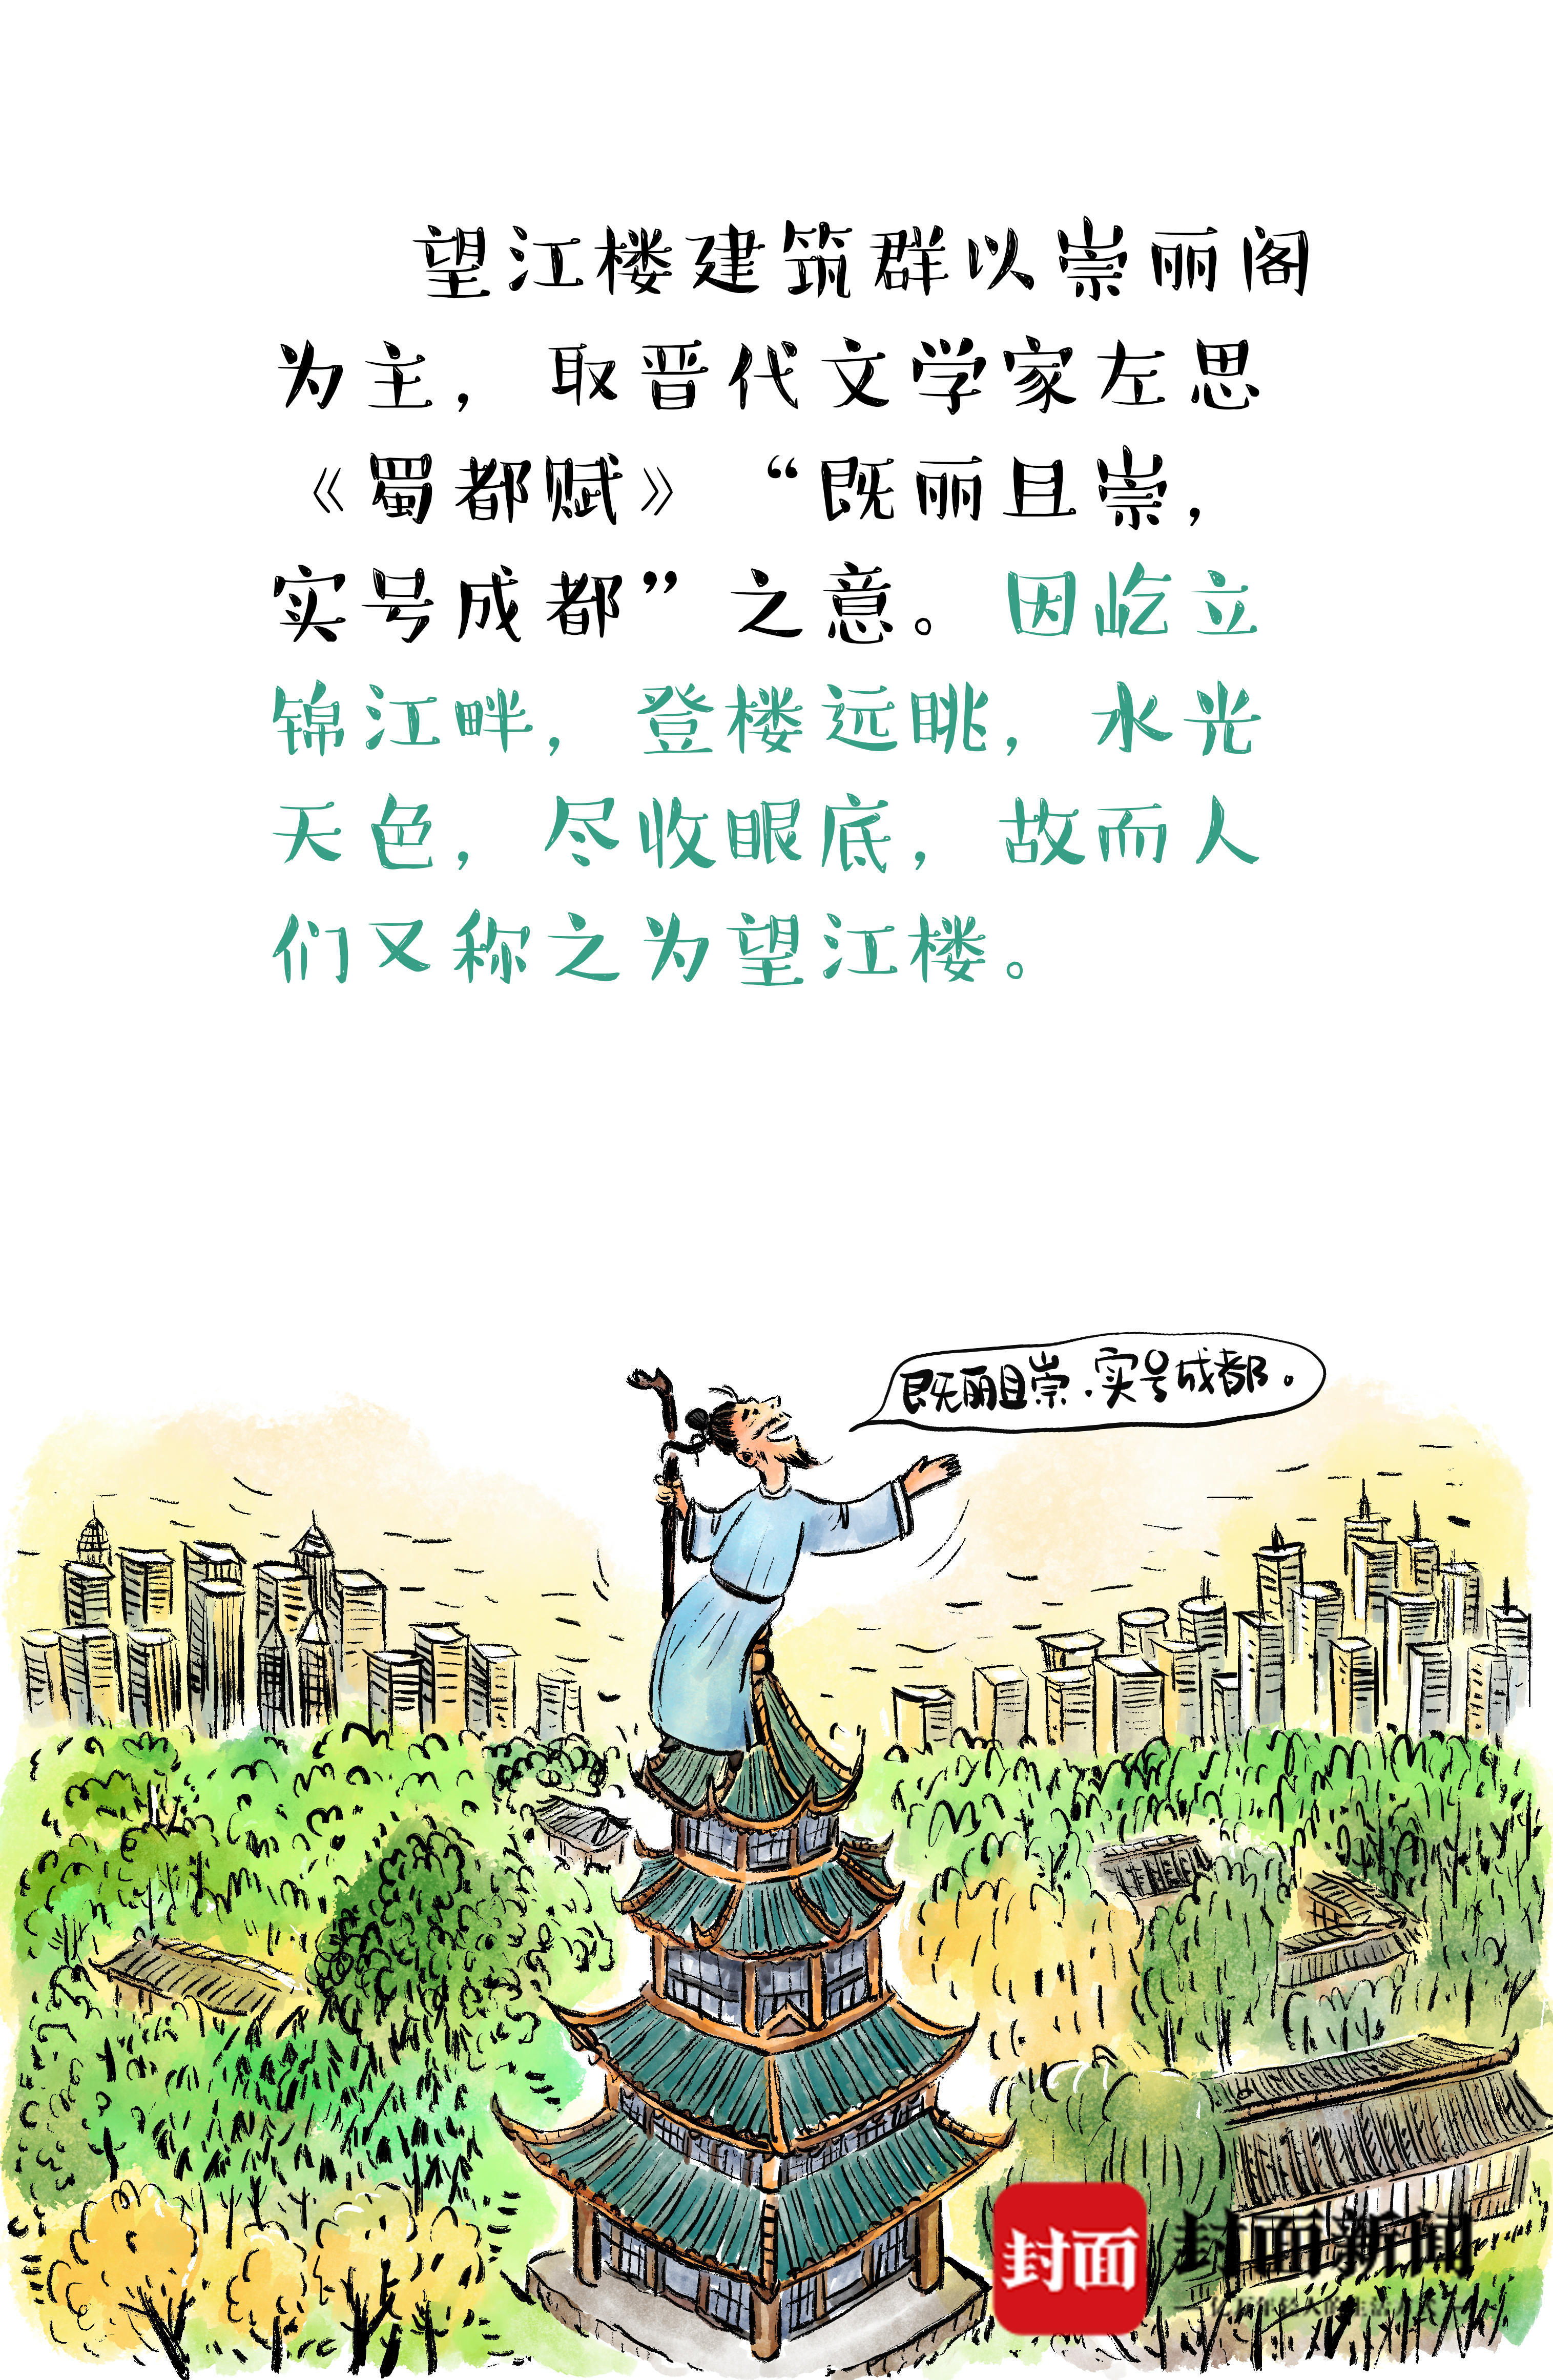 望江楼建筑群以崇丽阁
为主，取晋代文学家左思
《蜀都赋》“既丽且崇，
实号成都”之意。因屹立
锦江畔，登楼远眺，水光
天色，尽收眼底，故而人
们又称之为望江楼。
既丽且崇.实号成都。
封面
封面新闻